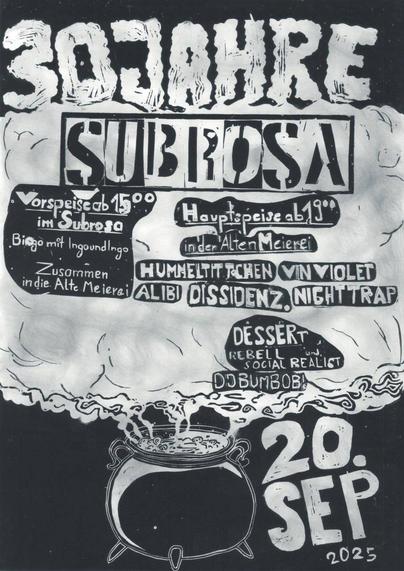 30 JAHRE
SUBROSA
Vorspeise ab 15⁰⁰
im Subrosa
Bingo mit Ingo und Ingo
Zusammen
in die Alte Meierei
Hauptspeise ab 19⁰⁰
in der Alten Meierei
HUMMELTITTCHEN VIN VIOLET
ALIBI DISSIDENZ. NIGHTTRAP
DESSERT
REBELL und
SOCIAL REALIST
DJ BUMBOB!
20.
SEP
2025